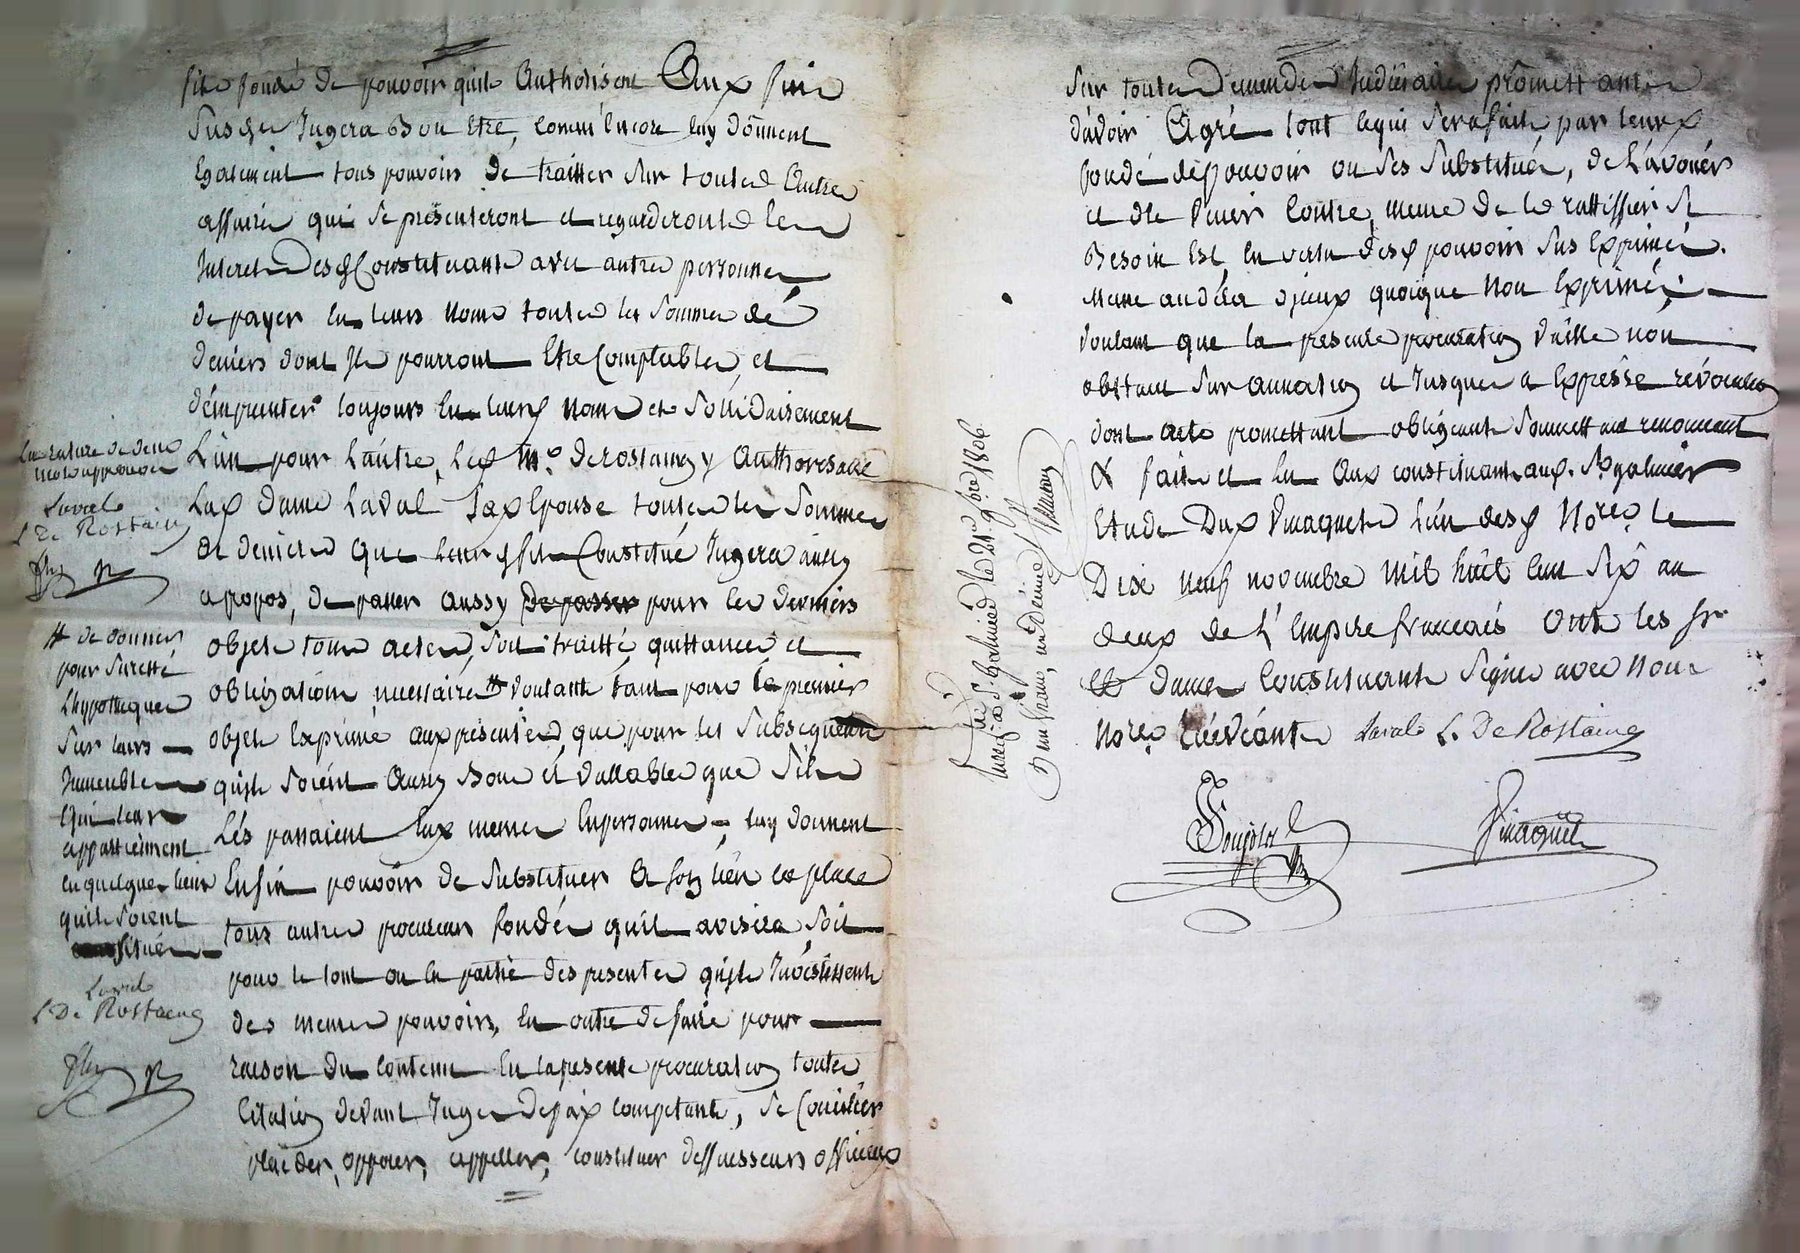 fils fondé de pouvoir quils Authorisent Aux fins
Susd Jugera Bon Etre, comm'Encore luy donnent
Egalement tous pouvoirs de traitter sur toutes Autres
affaires qui se présenteront et regarderont les
Interets desd Constituants avec autres personnes
de payer en leurs noms toutes les sommes de
deniers dont ils pourront Etre Comptables, et
d'emprunter toujours en leurs noms et sollidairement
L'un pour L'autre, led mr. derostaing y Authorisant
Lad dame Laval sad Epouse toutes les sommes
de deniers que leurd fils Constitué Jugera ainsy
apropos, de passer aussy de passer pour les derniers
objets tous actes, soit traitté quittances et
obligations necessaires # voulants tant pour le premier
objet Exprimé aux présentes que pour les subsequents
quils soient Aussy Bons et vallables que s'ils
Les passaient Eux memes En personnes, luy donnent
Enfin pouvoir de substituer A son lieu et place
tous autres procureurs fondés quil avisera soit
pour le tout ou en partie des presentes quils Investissent
des memes pouvoirs, En outre de faire pour
raison du contenu En la presente procuration toutes
Citation devant Juges de paix competants, se Concilier
plaider, opposer, appeller, constituer deffenseurs officieux
La rature de deux
mots approuvée
Laval
L De Rostaing
# de donner
pour Suretté
L'hypotheque
sur leurs
Immeubles
qui leur
appartiennent
en quelques lieux
quils soient
situés
Laval
L. De Rostaing
sur toutes demandes Judiciaires promettants
d'avoir Agré tout ce qui sera fait par leurd
fondé de pouvoir ou ses substitués, de L'avouer
et d'le venir contre, meme de le rattiffier si
Besoin Est en vertu desd pouvoirs sus Exprimés.
meme audela d'jceux quoique non Exprimés;
voulant que la presente procuration vaille non
obstant surannation et Jusques a Expresse révocation
dont acte promettant obligeant soumettant renonceant
& fait et lu Aux constituants aud. St galmier
Etude Dud Pinaquet L'un desd Nores le
Dixe neuf novembre mil huit Cent Six an
deux de L'Empire francais Ont les sr
et dames Constituants Signé avec Nous
Nores Laval L. De Rostaing
Pinaquet
Enregé à St galmier le 21 9bre 1806
Dun franc, un Décime